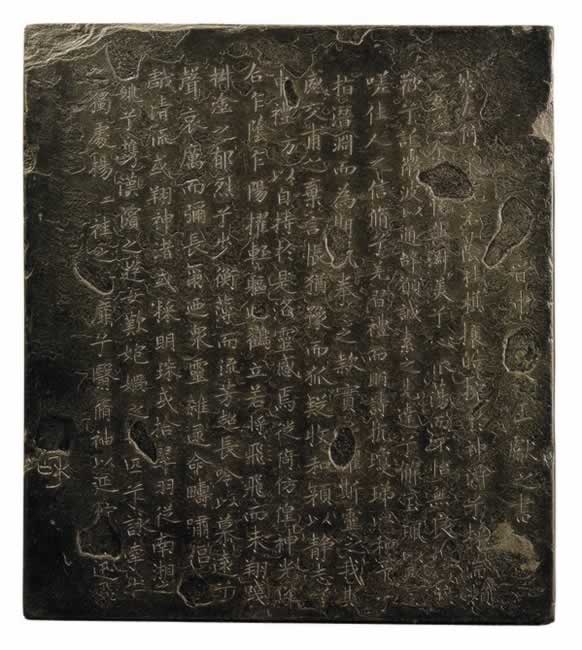 晉中 王獻之書
右 旗攘 腕於神滸兮
之 余 淑美兮心振蕩而不怡無良
歡兮託微波以通辭願誠素之先達兮解玉珮
嗟佳人之信脩兮羌習禮而明詩抗瓊珶以和予
指潛淵而為期執眷之款實 斯靈之我欺
感交甫之棄言悵猶豫而狐疑收和顏以靜志
申禮防以自持於是洛靈感焉徙倚仿偟神光離
合乍陰乍陽擢輕軀以鶴立若將飛飛而未翔踐
椒塗之郁烈兮步衡薄而流芳超長吟以慕遠兮
聲哀厲而彌長爾迺眾靈雜遝命疇嘯侶或
戲清流或翔神渚或採明珠或拾翠羽從南湘二
姚兮攜漢濱之遊女歎 媧之 匹兮詠牽牛
之獨處揚二袿之 靡兮翳脩袖以延佇 迅飛
永